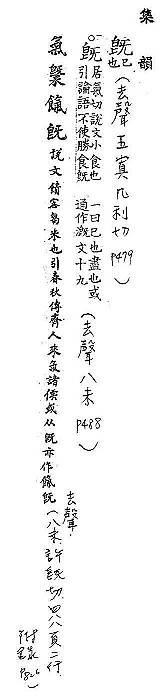 集韻
旣已也(去聲五寘几利切P479)
。旣居氣切說文小食也引論語不使勝食旣一曰已也盡也或通作溉文十九(去聲八未P488)
氣䊠餼旣說文饋客芻米也引春秋傳齊人來氣諸侯或从旣亦作餼旣
去聲(八未許旣切四八八頁二行